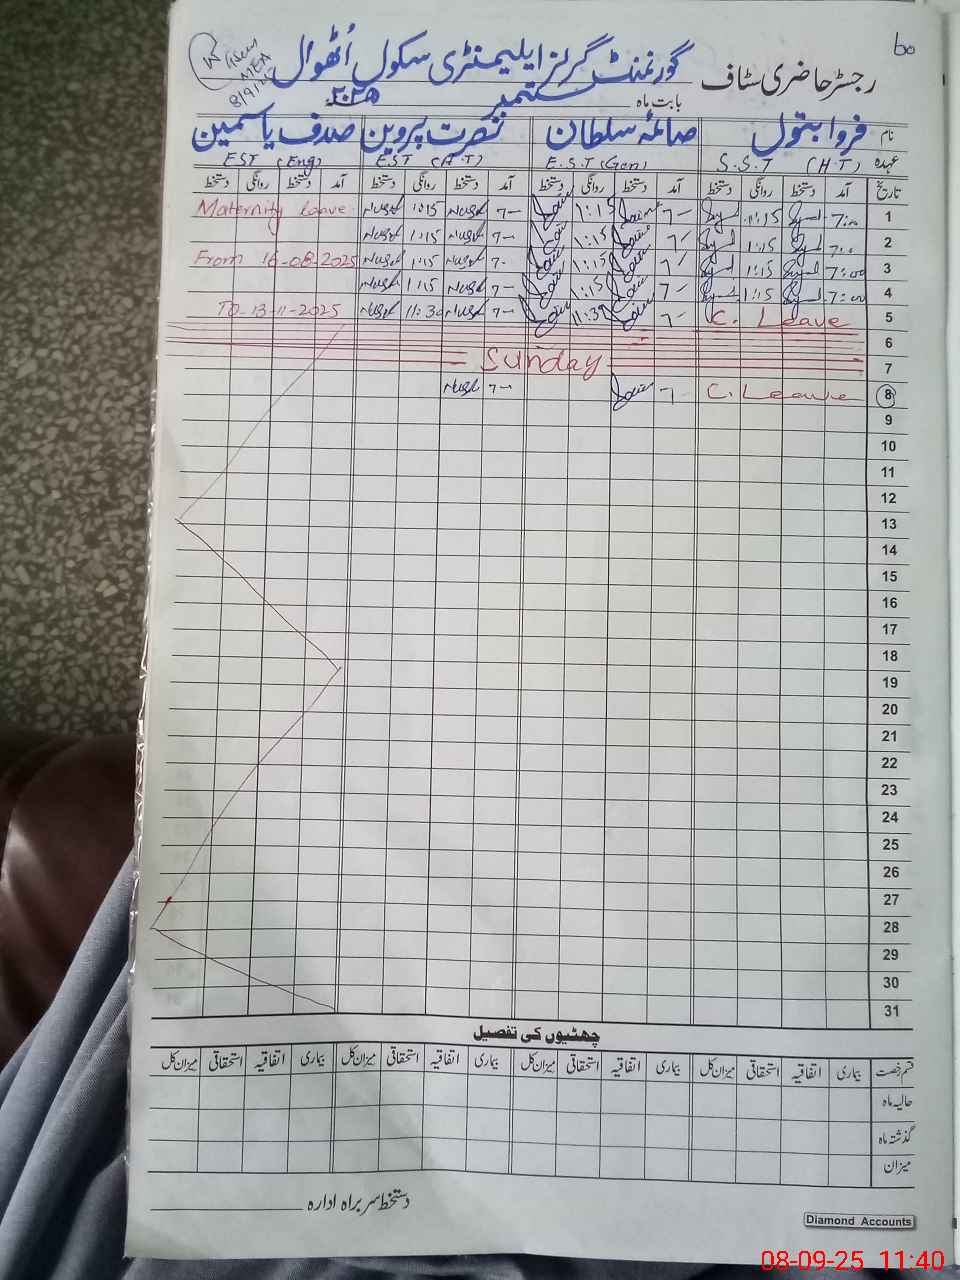 رجسٹر حاضری سٹاف گورنمنٹ گرلز ایلیمنٹری سکول اُٹھوال
MEA
8/9/
60
بابت ماہ ستمبر ۲۰۲۵
نام فروا بتول صائمہ سلطان نصرت پروین صدف یاسمین
عہدہ S.S.T (H.T) E.S.T (Gen) EST (A.T) EST (Eng)
تاریخ آمد دستخط روانگی دستخط آمد دستخط روانگی دستخط آمد دستخط روانگی دستخط آمد دستخط روانگی دستخط
Maternity Leave 1:15 7- 1:15 7- 1:15 7:00 1
1:15 7- 1:15 7- 1:15 7:00 2
From 16-08-2025 1:15 7- 1:15 7- 1:15 7:00 3
1:15 7- 1:15 7- 1:15 7:00 4
TO 13-11-2025 11:30 7- 11:30 7- C. Leave 5
6
Sunday 7
7- 7- C. Leave 8
9
10
11
12
13
14
15
16
17
18
19
20
21
22
23
24
25
26
27
28
29
30
31
چھٹیوں کی تفصیل
قسم رخصت بیماری اتفاقیہ استحقاقی میزان کل بیماری اتفاقیہ استحقاقی میزان کل بیماری اتفاقیہ استحقاقی میزان کل بیماری اتفاقیہ استحقاقی میزان کل
حالیہ ماہ
گذشتہ ماہ
میزان
دستخط سربراہ ادارہ
Diamond Accounts
08-09-25 11:40